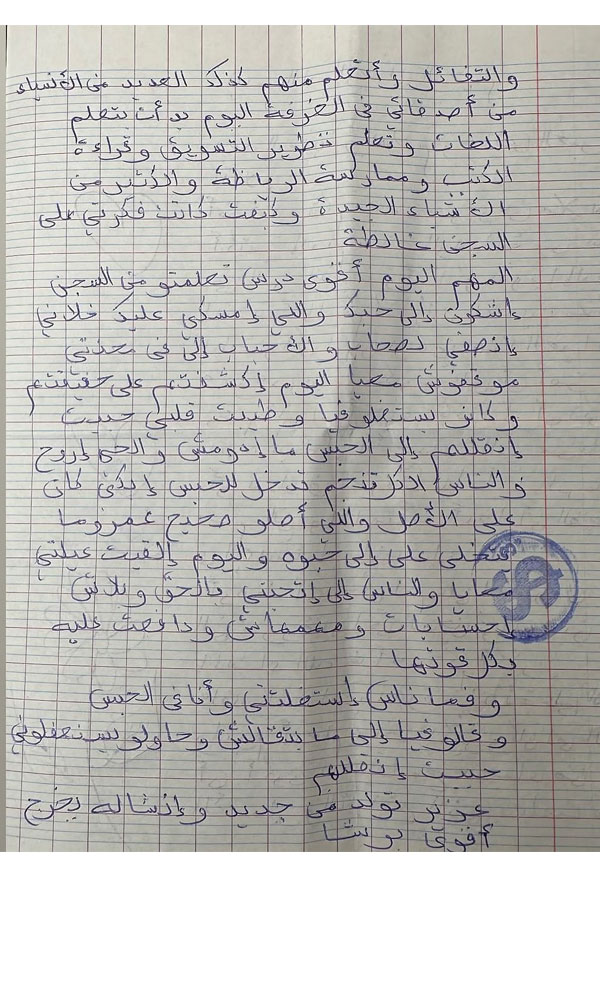 والتفائل وأتعلم منهم كذلك العديد من الأشياء
من أصدقائي في الغرفة اليوم بدأت نتعلم
اللغات وتعلم تطوير التسويق وقراءة
الكتب وممارسة الرياظة والكثير من
الأشياء الجيدة وكيفت كانت فكرتي على
السجن غالطة
المهم اليوم أقوى درس تعلمتو من السجن
إشكون إلى حبك واللي إمسكي عليك خلاني
إنصفي لصحاب والأحباب إلي في محنتي
موقفوش معيا اليوم إكتشفتهم على حقيقتهم
وكانو يستغلو فيا وطيبت قلبي حبيت
إنقللهم إلى الحبس ما إدومش والحي إروح
والناس الكل تنجم تدخل للحبس إيكن كان
على الأصل واللي أصلو صحيح عمرو ما
يتخلى على إلى حبوه واليوم إلقيت عيلتي
معايا والناس إلى إتحبني بالحق وبلاش
إحسابات ومهمهاش ودافعت عليه
بكل قوتها
وفما ناس إستغلتني وأنا في الحبس
وقالو فيا إلى ما يتقالش وحاولو يستغفلوني
حبيت إنقللهم
عزيز تولد من جديد وإنشاله يخرج
أقوى برشا